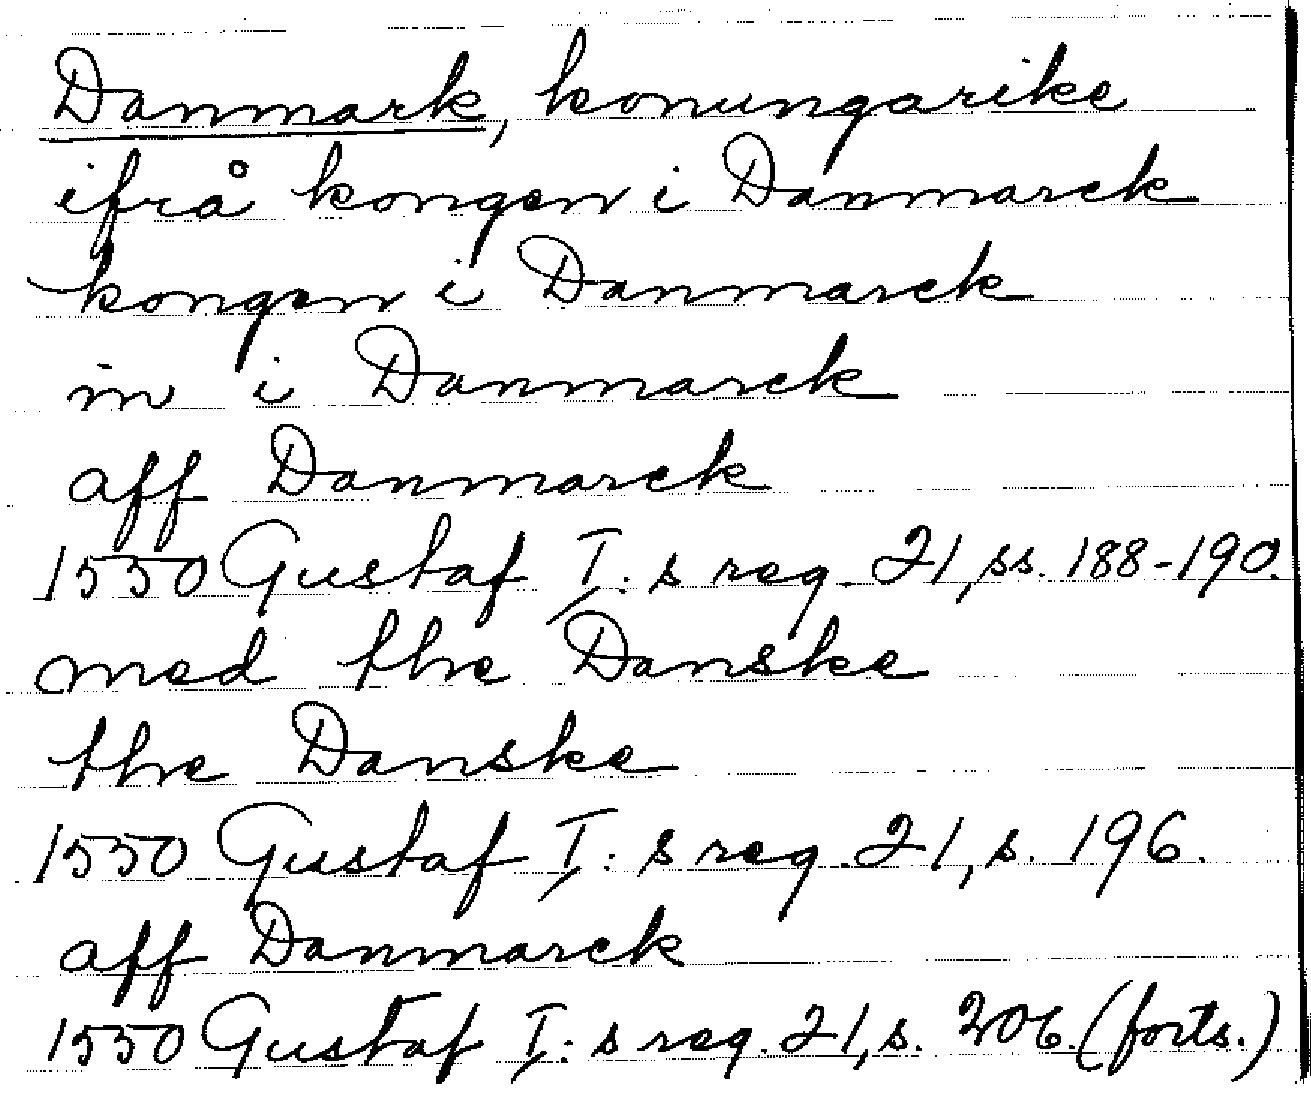 Danmark, konungarike
ifrå kongen i Danmarck
kongen i Danmarck
in i Danmarck
aff Danmarck
1550 Gustaf I: s reg. 21, ss. 188-190.
med the Danske
the Danske
1550 Gustaf I: s reg. 21, s. 196.
aff Danmarck
1550 Gustaf I: s reg. 21, s. 206. (forts.)